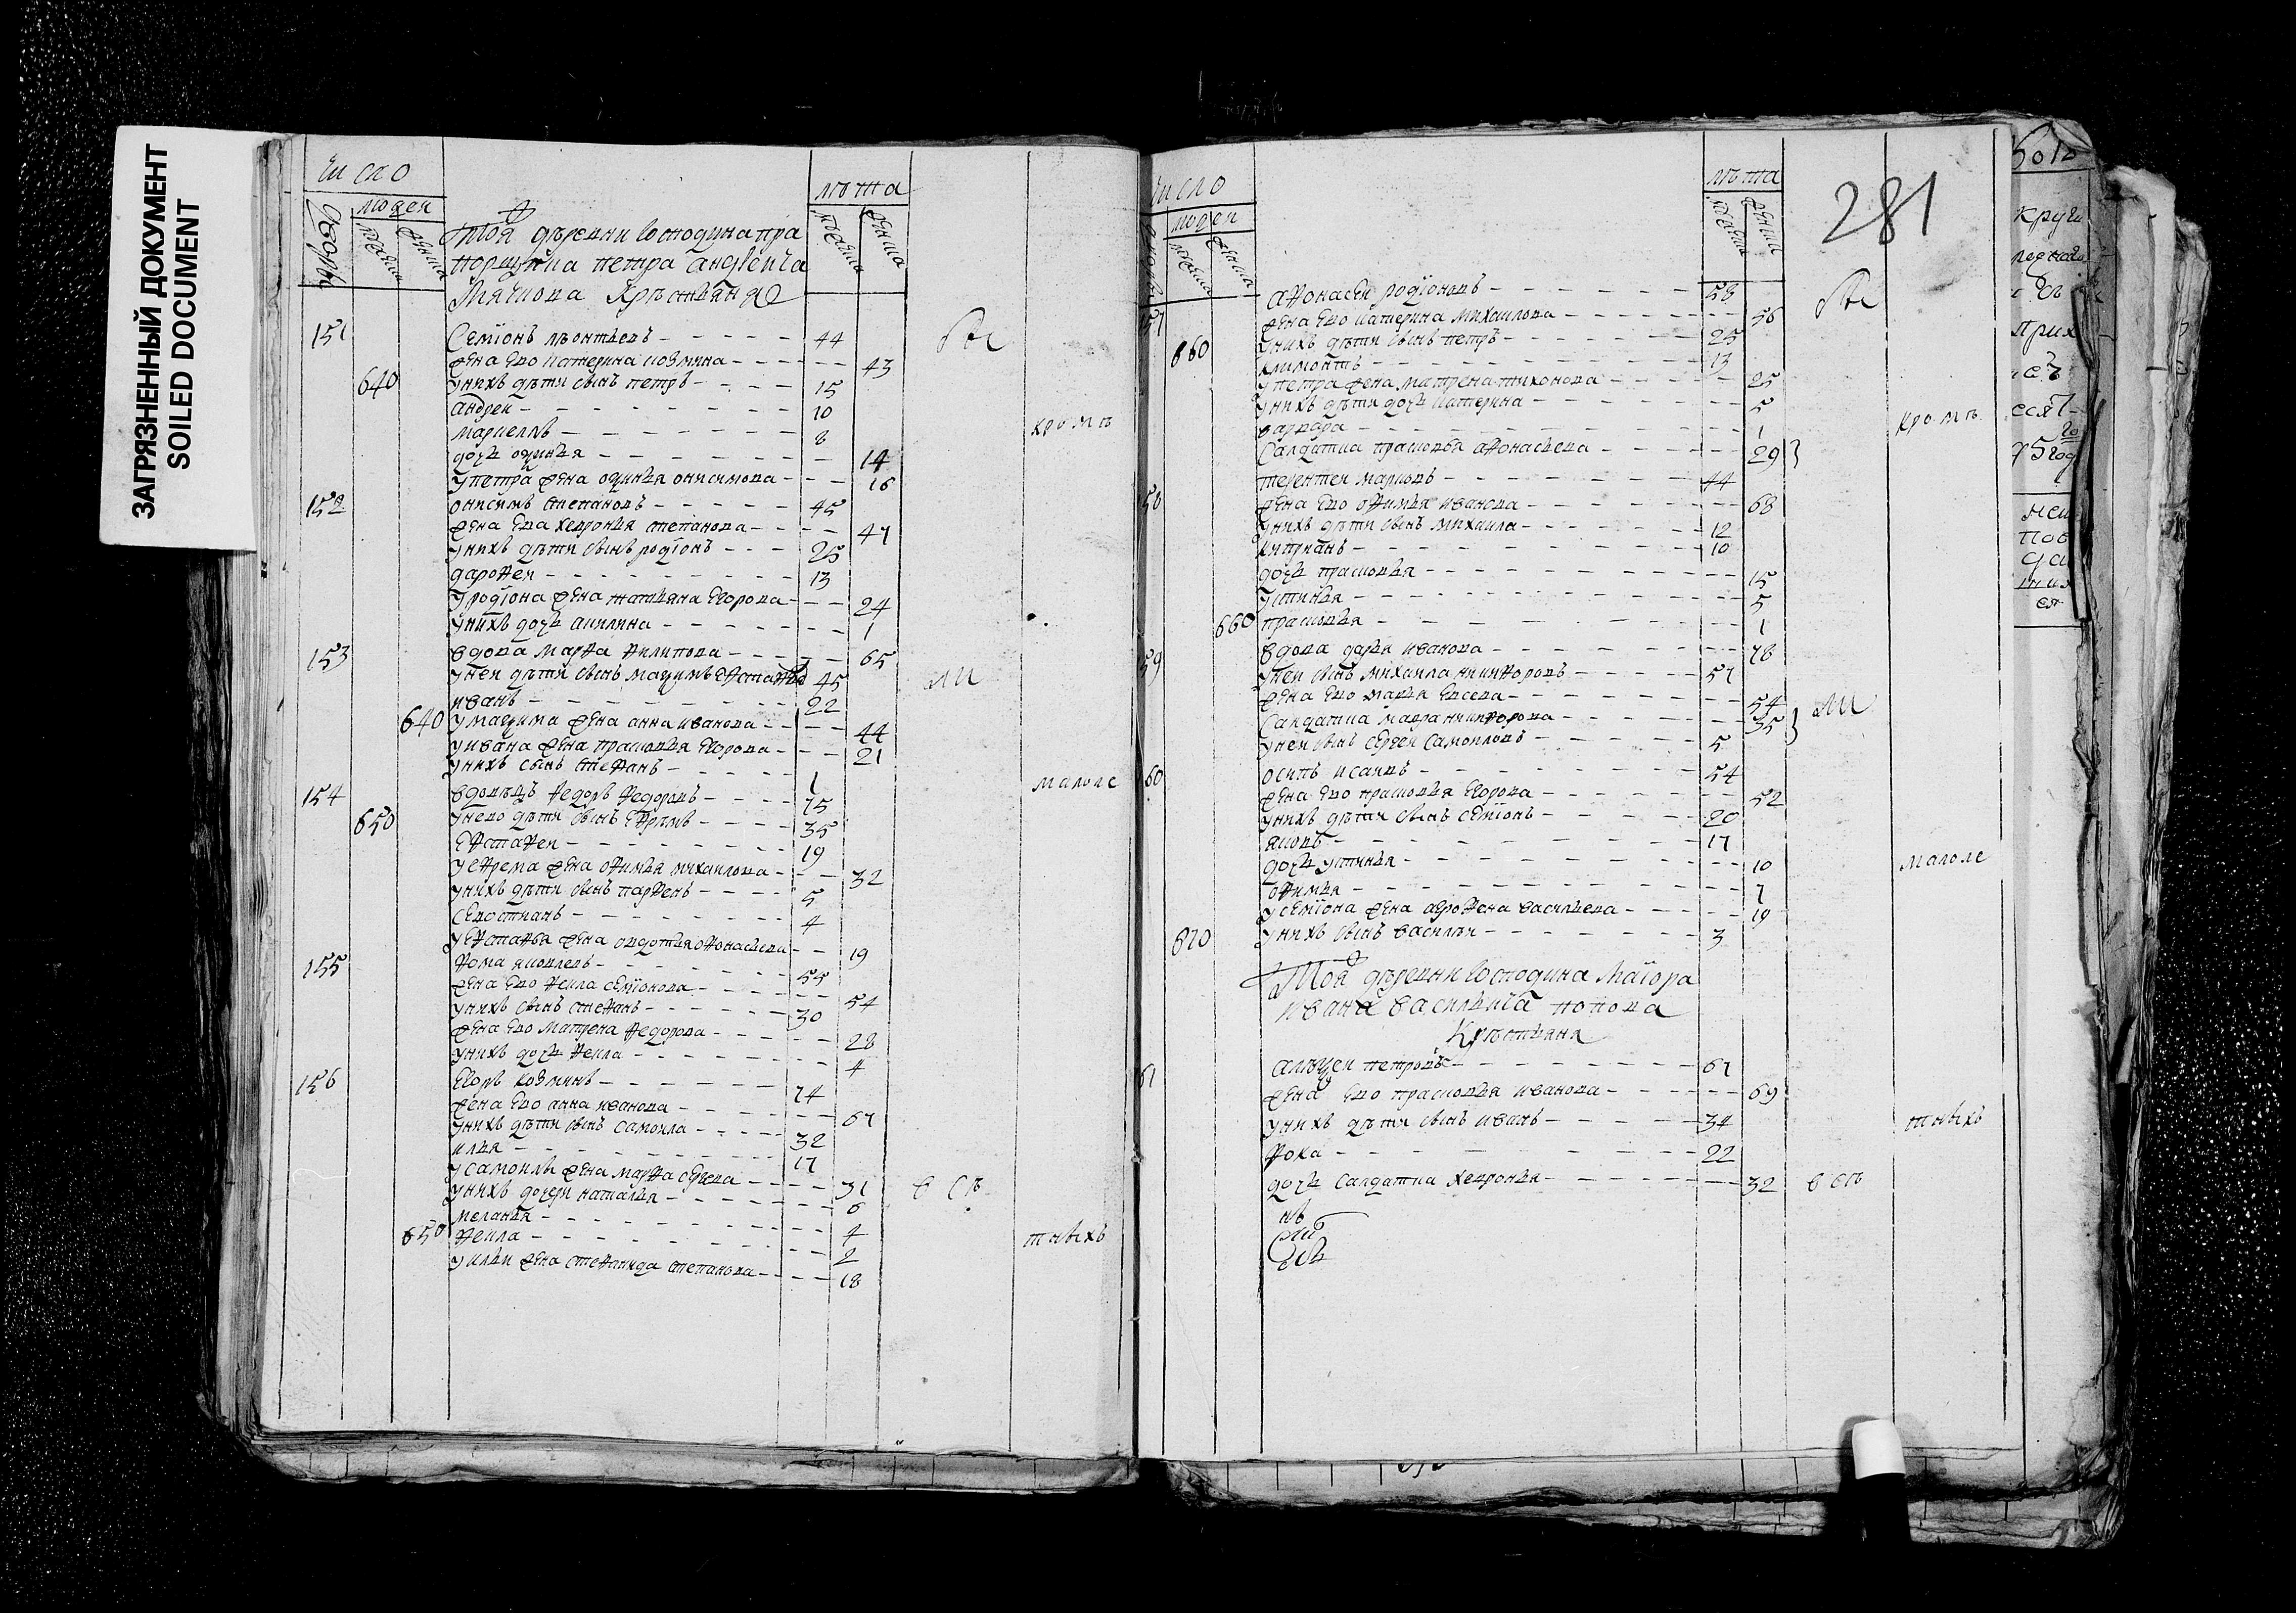 ЗАГРЯЗНЕННЫЙ ДОКУМЕНТ
SOILED DOCUMENT
число
людей
лѣта
Той деревни господина пра
порщика петра андреича
крѣстьяня
151 Семіонъ леонтьевъ 44
жена ево катерина козмина 43
640 у нихъ дѣти сынъ петръ 15
андреи 10
маркеллъ 8
дочь 14
у петра жена онисимова 16
152 онисимъ степановъ 45
жена ева хевронья степанова 47
у нихъ дѣти сынъ родіонъ 25
дарофеи 13
у родіона жена татьяна егорова 24
у нихъ дочь акилина 1
153 вдова марфа филипова 65
у неи дѣти сынъ 45
иванъ 22
640 жена анна иванова 44
у ивана жена прасковья егорова 21
у нихъ сынъ стефанъ 1
154 вдовецъ федоръ федоровъ 75
650 у нево дѣти сынъ ефремъ 35
евстафеи 19
у ефрема жена офимья михаилова 32
у нихъ дѣти сынъ парфенъ 5
севостианъ 4
жена овдотья офонасьева 19
155 фома яковлевъ 55
жена ево фекла семіонова 54
у нихъ сынъ стефанъ 30
жена ево матрена федорова 28
у нихъ дочь фекла 4
156 егоръ козминъ 74
жена ево анна иванова 67
у нихъ дѣти сынъ самоила 32
илья 17
у самоилы жена марфа 31
у нихъ дочери наталья 6
меланья 4
650 фекла 2
у ильи жена стефанида степанова 18
кромѣ
малоле
тныхъ
число
людей
лѣта
281
57 афонасеи родіоновъ 58
жена ево катерина михаилова 56
660 у нихъ дѣти сынъ петръ 25
климонтъ 13
у петра жена матрена тихонова 25
у нихъ дѣти дочь катерина 5
варвара 1
салдатка прасковья афонасьева 29
58 терентеи марковъ 44
жена ево офимья иванова 68
у нихъ дѣти сынъ михаила 12
киприанъ 10
дочь прасковья 15
устинья 5
660 прасковья 1
59 вдова дарья иванова 78
у неи сынъ михаила никифоровъ 57
жена ево марья 54
салдатка мавра никифорова 35
у неи сынъ сергеи самоиловъ 5
60 осипъ исаевъ 54
жена ево прасковья егорова 52
у нихъ дѣти сынъ семіонъ 20
яковъ 17
дочь устинья 10
офимья 7
у семіона жена агрофена васильева 19
870 у нихъ сынъ василеи 3
Той деревни господина маіора
ивана васильича попова
крѣстьяня
61 алексеи петровъ 67
жена ево прасковья иванова 69
у нихъ дѣти сынъ иванъ 34
фока 22
дочь салдатка хевронья 32
кромѣ
малоле
тныхъ